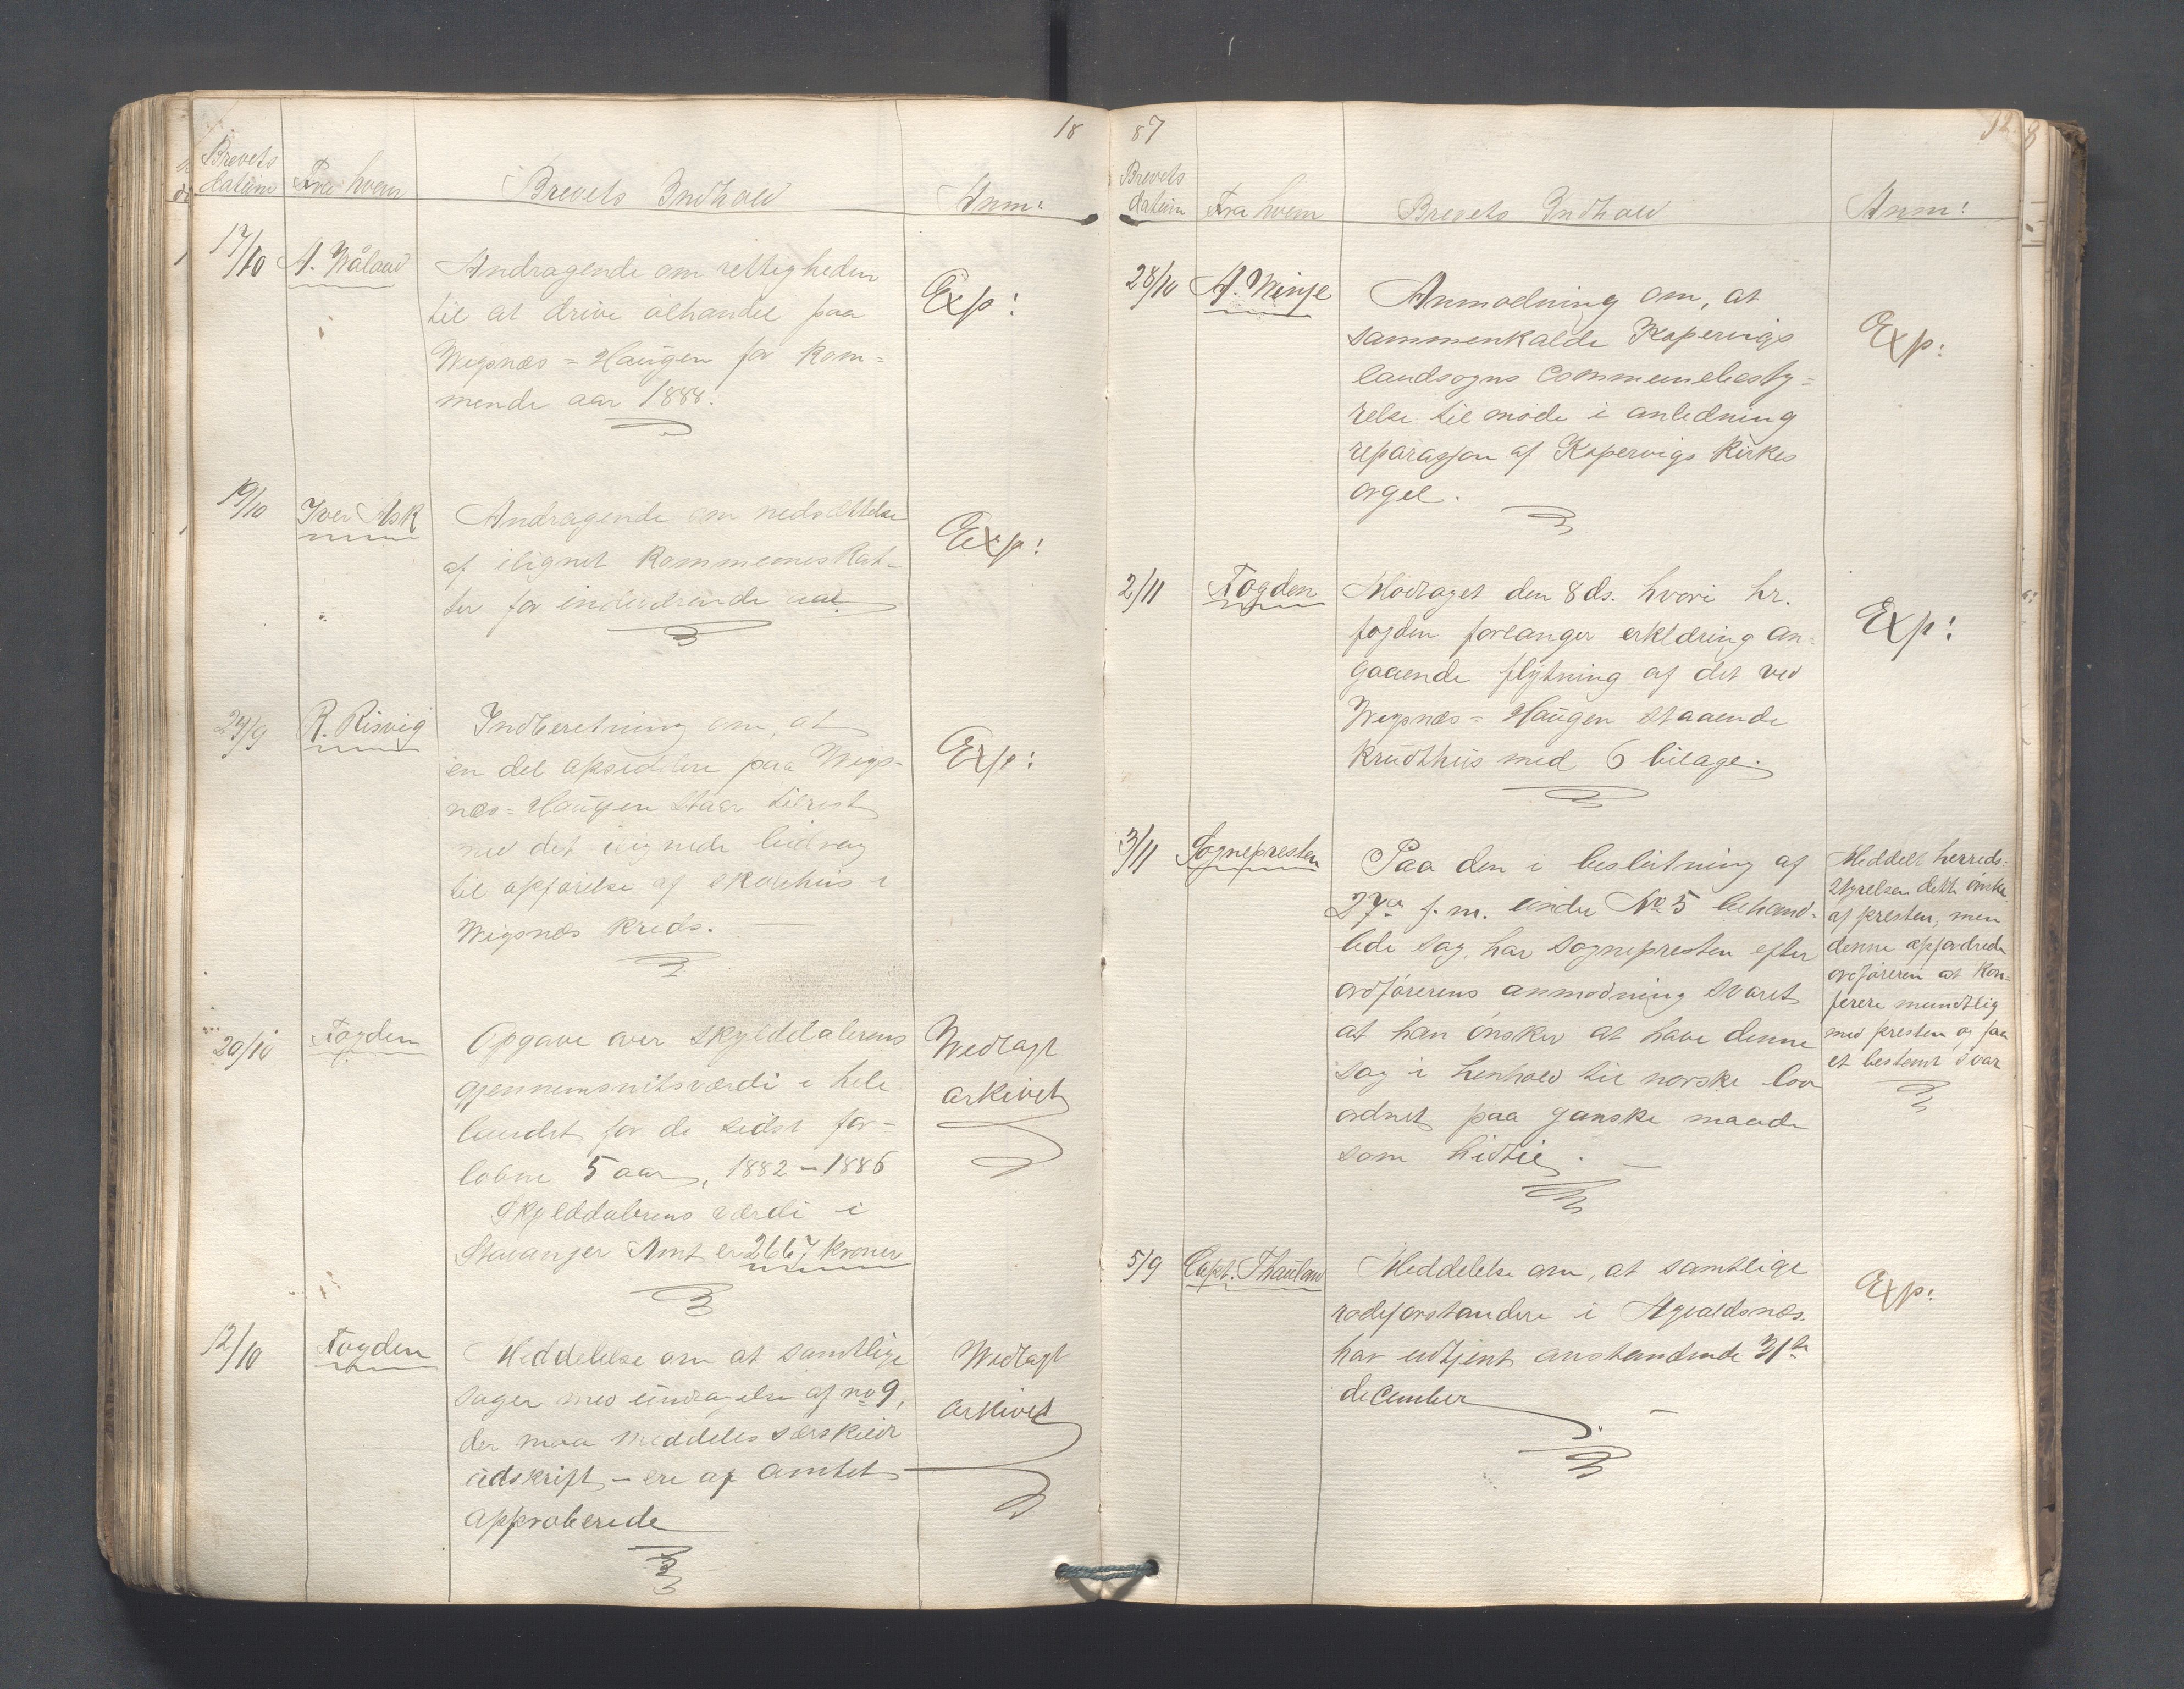 18
Brevets
datum
Fra hvem
Brevets Indhold
Anm:
17/10
A. Wåland
Andragende om rettigheden
til at drive ölhandel paa
Wigsnæs = Haugen for kom=
mende aar 1888.
Exp!
19/10
Iver Ask
Andragende om nedsættelse
af ilignet kommuneskat-
ter for indeværende aar.
Exp!
24/9
R. Risvig
Indberetning om, at
en del opsiddere paa Wigs-
næs = Haugen staar tilrest
med det ilignede bidrag
til opførelse af skolehus i
Wigsnæs kreds.
Exp:
20/10
Fogden
Opgave over skylddalerens
gjennemsnitsværdi i hele
landet for de sidst for-
løbne 5 aar, 1882 - 1886
Skylddalerens værdi i
Stavanger Amt er 2667 kroner
Vedlagt
arkivet
12/10
Fogden
Meddelelse om at samtlige
sager med undtagelse af no 9,
der maa meddeles særskildt
udskrift - ere af amtet
approberede
Vedlagt
arkivet
87
Brevets
datum
Fra hvem
Brevets Indhold
Anm:
28/10
A. Winje
Anmodning om, at
sammenkalde Kopervigs
landsogns Communebesty=
relse til møde i anledning
reparasjon af Kopervigs kirkes
orgel.
Exp:
2/11
Fogden
Modtaget den 8 ds. hvori hr.
fogden forlanger erklæring an=
gaaende flytning af det ved
Wigsnæs = Haugen staaende
krudthus med 6 bilage.
Exp:
3/11
Sognepresten
Paa den i beslutning af
27de f. m. under No 5 behand-
lede sag, har sognepresten efter
ordförerens anmodning svaret
at han önsker at have denne
sag i henhold til norske lov
ordnet paa ganske maade
som hidtil.
Meddelt herreds-
styrelsen dette önske
af presten, men
denne opfordrede
ordföreren at kon-
ferere mundtlig
med presten og faa
et bestemt svar
5/9
Capt. Thaulow
Meddelelse om, at samtlige
rodeforstandere i Agvaldsnæs.
har udtjent anstundende 31te
december
Exp: